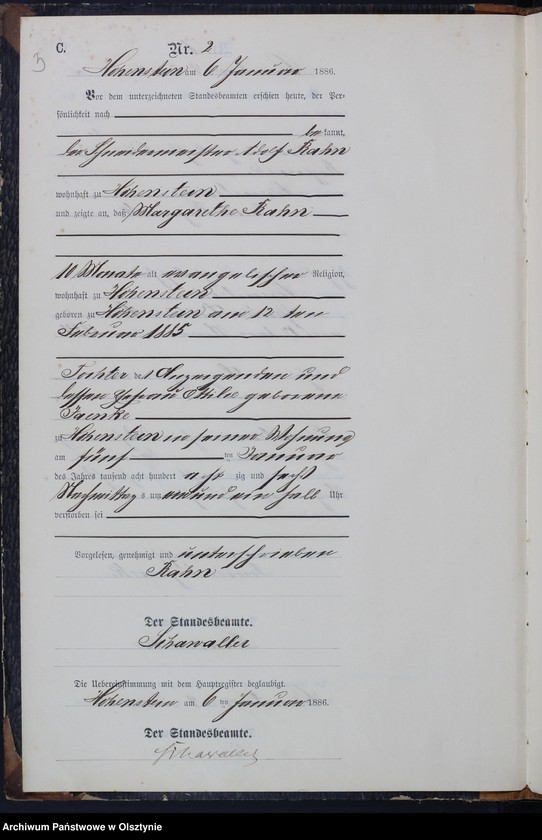 C.
Nr. 2
5
Hohenstein am 6 Januar 1886.
Vor dem unterzeichneten Standesbeamten erschien heute, der Per-
sönlichkeit nach
bekannt,
der Schneidermeister Adolf Rahn
wohnhaft zu Hohenstein
und zeigte an, daß Margarethe Rahn
10 Monate alt evangelischer Religion,
wohnhaft zu Hohenstein
geboren zu Hohenstein am 12 ten
Februar 1885
Tochter des Anzeigenden und
dessen Ehefrau Ottilie geborene
zu Hohenstein in seiner Wohnung
am fünf ten Januar
des Jahres tausend acht hundert acht zig und sechs
Nachmittags um ein halb Uhr
verstorben sei
Vorgelesen, genehmigt und unterschrieben
Rahn
Der Standesbeamte.
Schawaller
Die Uebereinstimmung mit dem Hauptregister beglaubigt.
Hohenstein am 6 ten Januar 1886.
Der Standesbeamte.
Schawaller
Archiwum Państwowe w Olsztynie